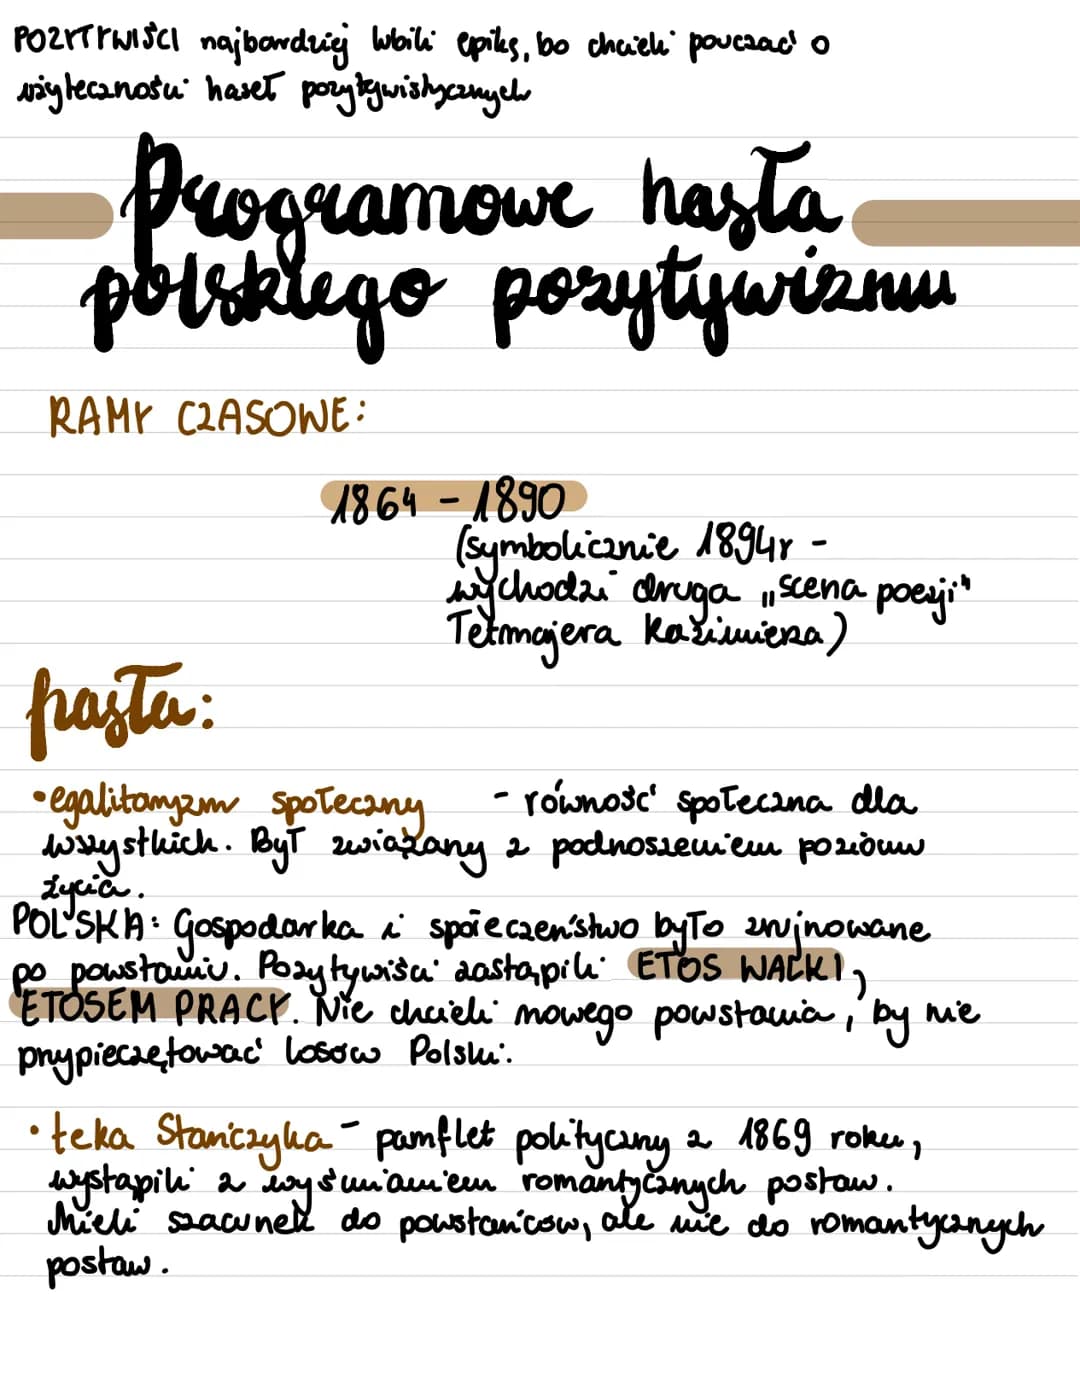 POZYTYWIŚCI najbardziej lubili epikę, bo chcieli pouczać o
użyteczności haseł pozytywistycznych
Programowe hasła
polskiego pozytywizmu
RAMY CZASOWE:
1864 - 1890
(symbolicznie 1894r -
wychodzi druga „scena poezji"
Tetmajera Kazimierza)
hasła:
•egalitaryzm społeczny - równość społeczna dla
wszystkich. Był związany z podnoszeniem poziomu
życia.
POLSKA: Gospodarka i społeczeństwo było zrujnowane
po powstaniu. Pozytywiści zastąpili ETOS WALKI,
ETOSEM PRACY. Nie chcieli nowego powstania, by nie
przypieczętować losów Polski.
•teka Stańczyka - pamflet polityczny z 1869 roku,
wystąpili z wyśmianiem romantycznych postaw.
Mieli szacunek do powstańców, ale nie do romantycznych
postaw.